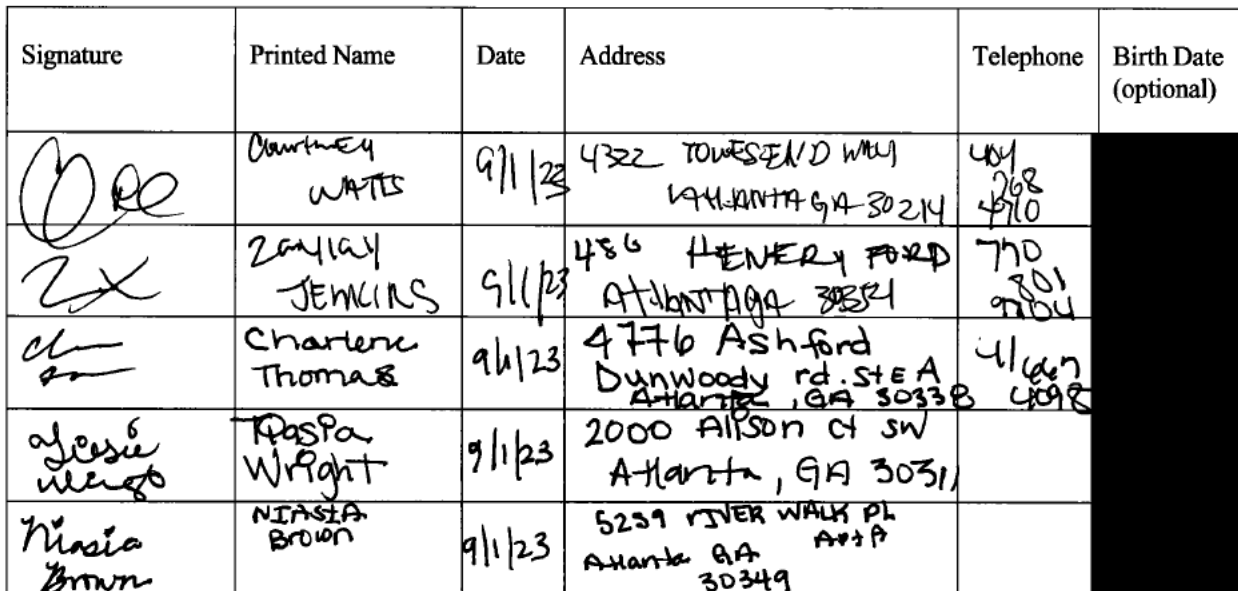 Signature Printed Name Date Address Telephone Birth Date
(optional)
Courtney
WATTS
9/1/23
4322 TOWESEND WAY
ATLANTA GA 30214
404
768
Zaylay
JENKINS
9/1/23
486 HENERY FORD
ATLANTA GA 30354
770
801
9704
Charlene
Thomas
9/1/23
4776 Ashford
Dunwoody rd. Ste A
Atlanta, GA 30338
4098
Wright
9/1/23
2000 Alison ct SW
Atlanta, GA 30311
Niasia
Brown
NIASIA
Brown
9/1/23
5239 RIVER WALK PL
Apt A
Atlanta GA
30349